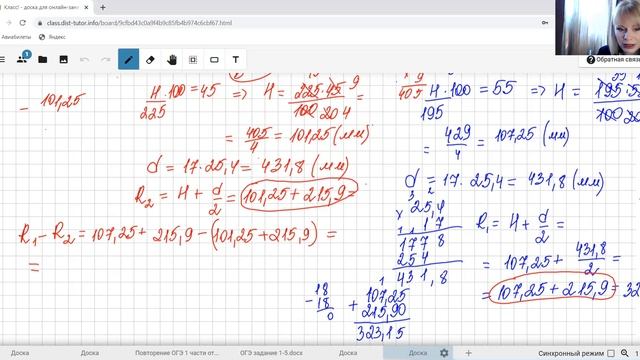 Класс! - доска для онлайн-зан
class.dist-tutor.info/board/9cfbd43c0a9f4b9c85fb4b974c6cbf67.html
Авиабилеты
Языки
Обратная связь
- 101,25
H·100/225 = 45 => H = 225·45/100 =
9
20 4
= 405/4 = 101,25 (мм)
d = 17·25,4 = 431,8 (мм)
R₂ = H + d/2 = 101,25 + 215,9 =
R₁ - R₂ = 107,25 + 215,9 - (101,25 + 215,9) =
=
405
H·100/195 = 55 => H = 195·5
100 20
= 429/4 = 107,25 (мм)
d = 17·25,4 = 431,8 (мм)
3 2
25,4
x 17
1778
254
431,8
R₁ = H + d/2 =
= 107,25 + 431,8/2 =
= 107,25 + 215,9 = 32
18
- 18
0
107,25
+ 215,90
323,15
Доска
Доска
Повторение ОГЭ 1 части от...
ОГЭ задание 1-5.docx
Доска
Доска
Синхронный режим